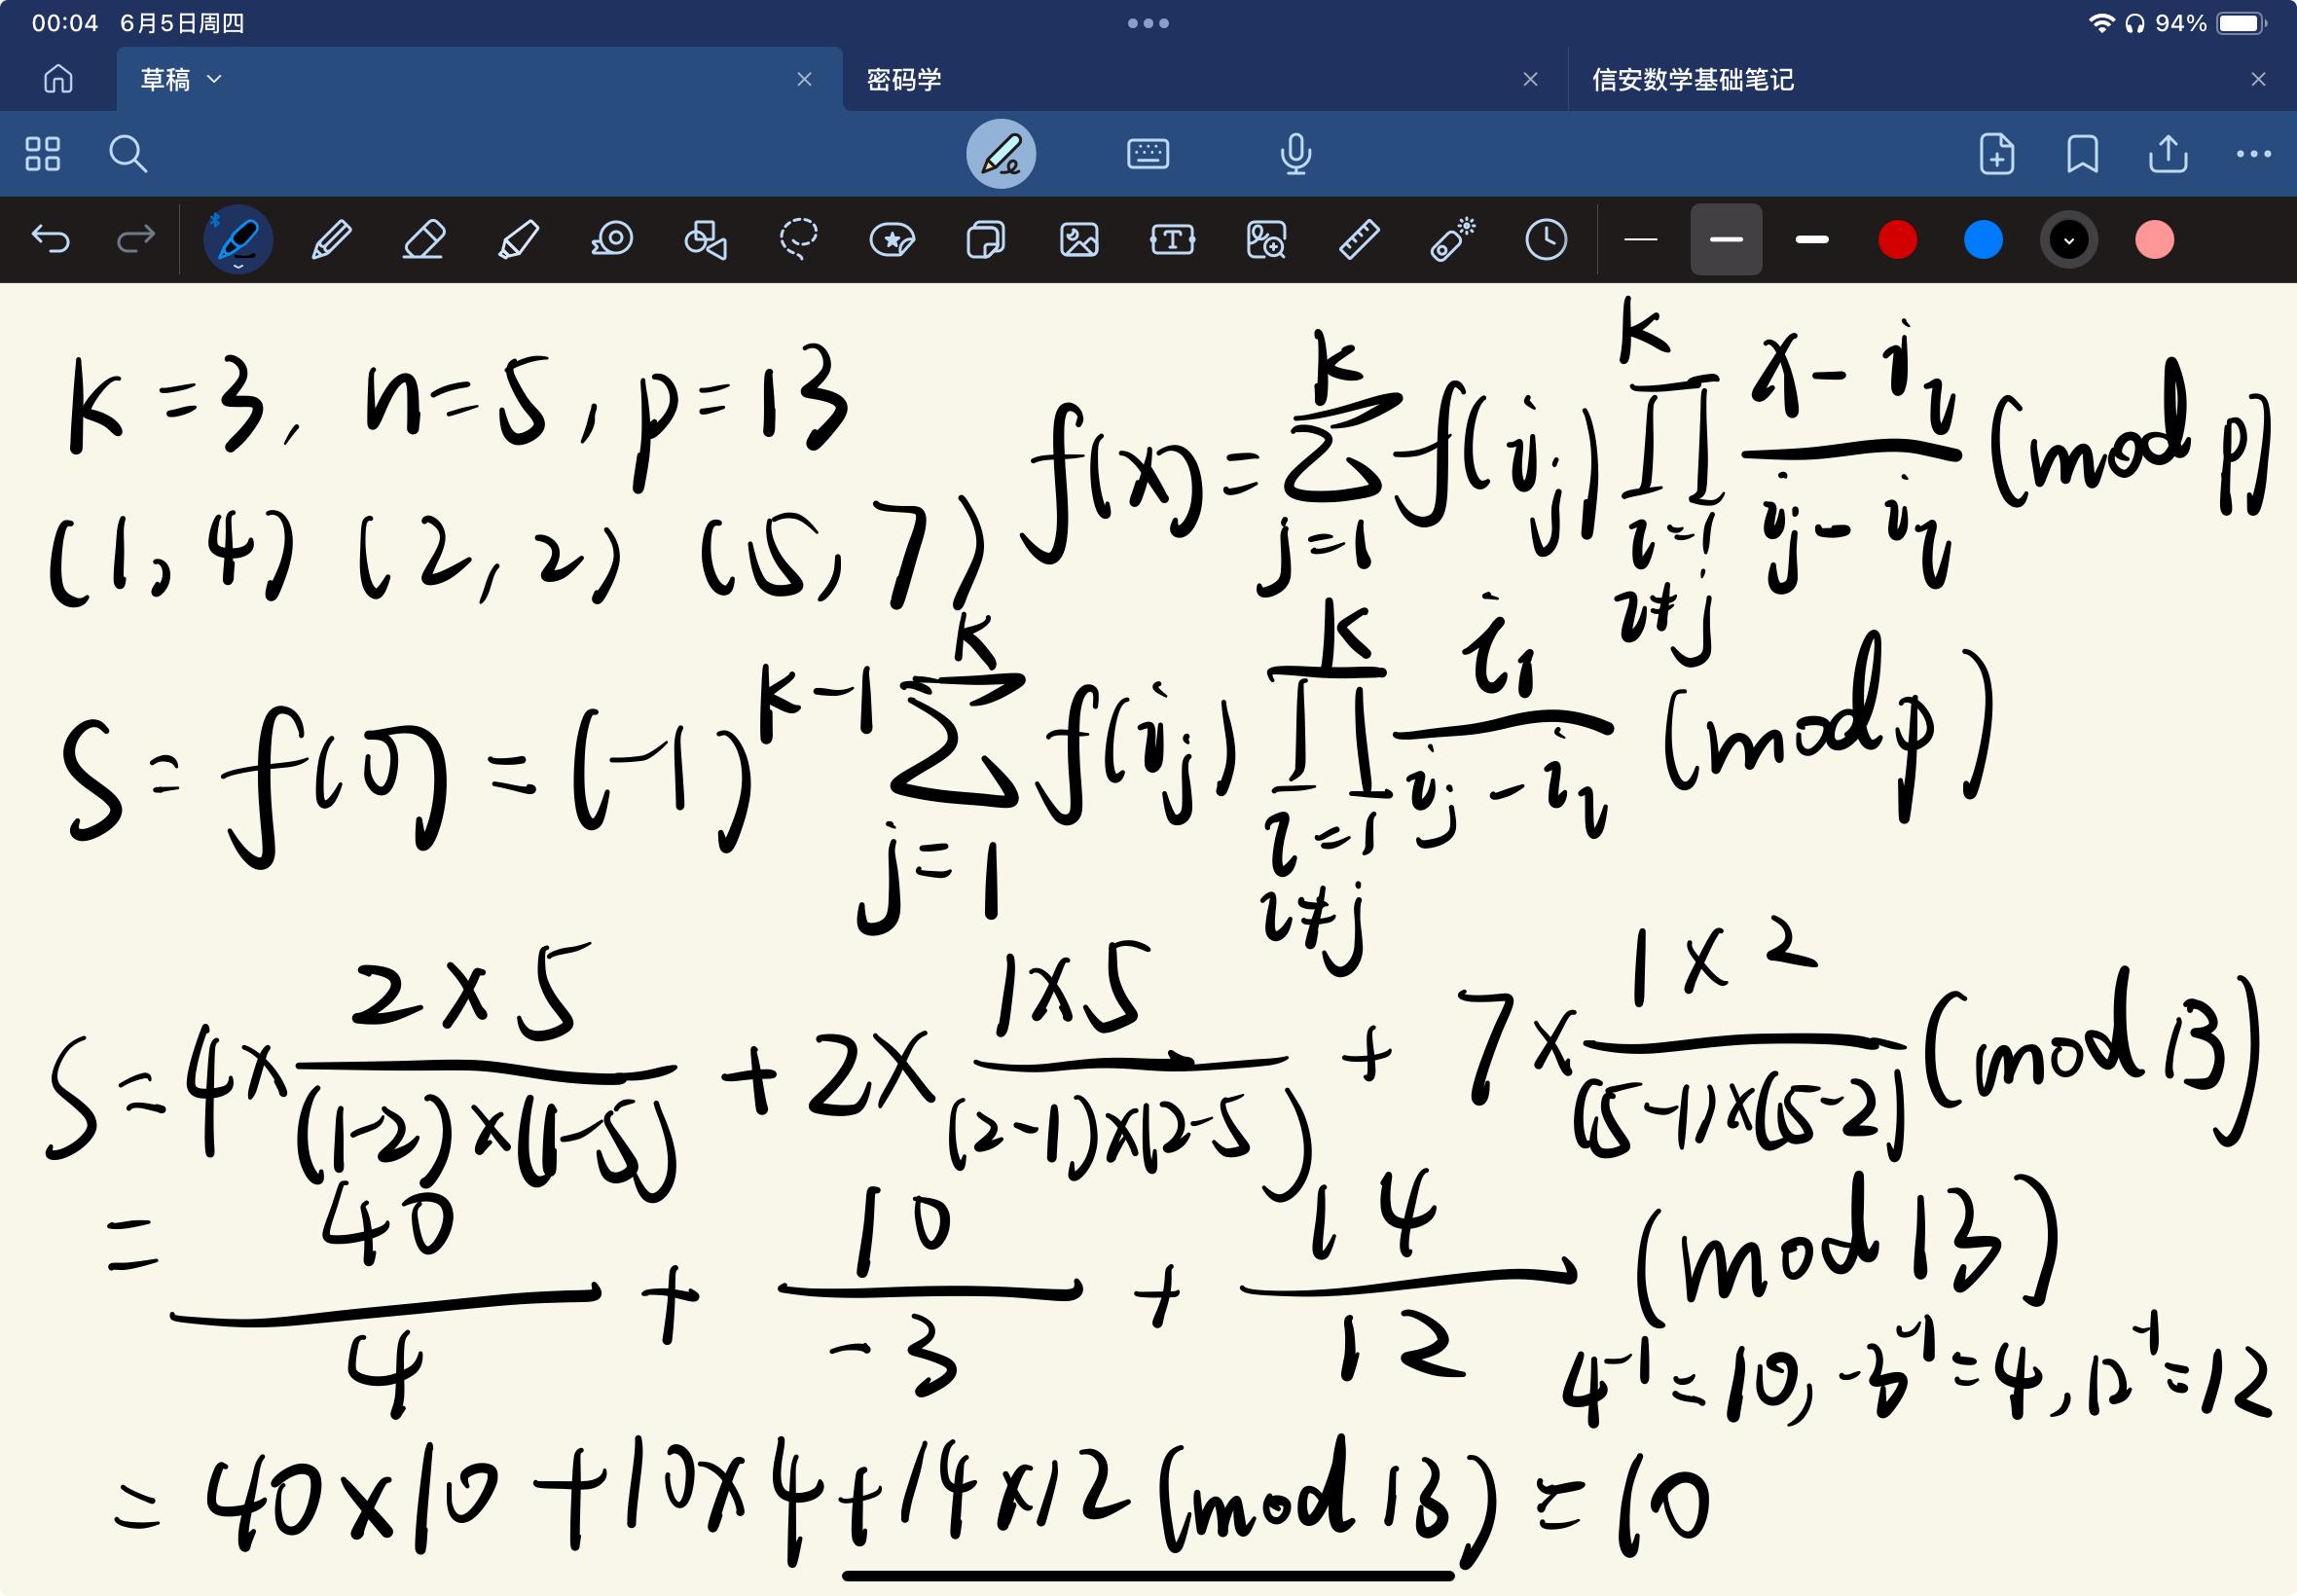 00:04 6月5日周四 94%
草稿 密码学 信安数学基础笔记
K=3, n=5, p=13
f(x)=∑_{j=1}^{k} f(i_j) ∏_{l=1, l≠j}^{k} (x-i_l)/(i_j-i_l) (mod p)
(1,4) (2,2) (5,7)
S=f(0)=(-1)^{k-1} ∑_{j=1}^{k} f(i_j) ∏_{l=1, l≠j}^{k} i_l/(i_j-i_l) (mod p)
S=4×(2×5)/((1-2)×(1-5))+2×(1×5)/((2-1)×(2-5))+7×(1×2)/((5-1)×(5-2)) (mod 13)
=40/4+10/-3+14/12 (mod 13)
4^{-1}=10, -3^{-1}=4, 12^{-1}=12
=40×10+10×4+14×12 (mod 13)≡10